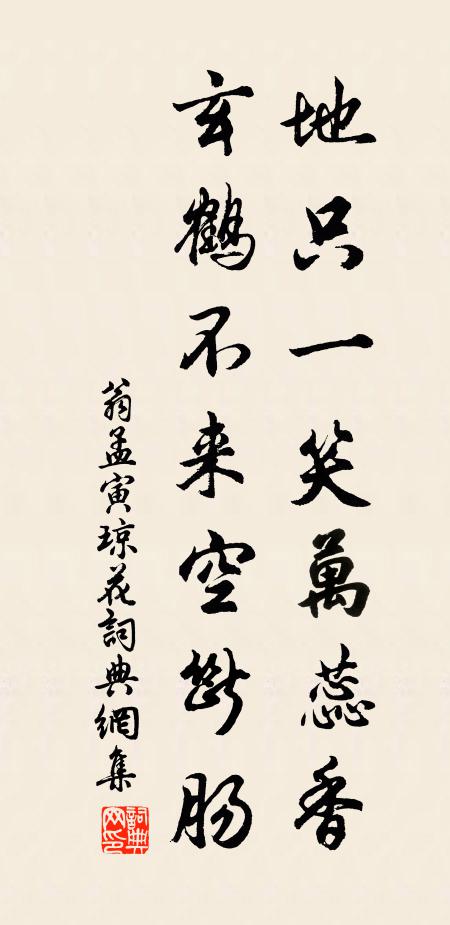 地只一笑萬蕊香
玄鶴不来空斷肠
翁孟寅琼花詞典網集
詞典網印